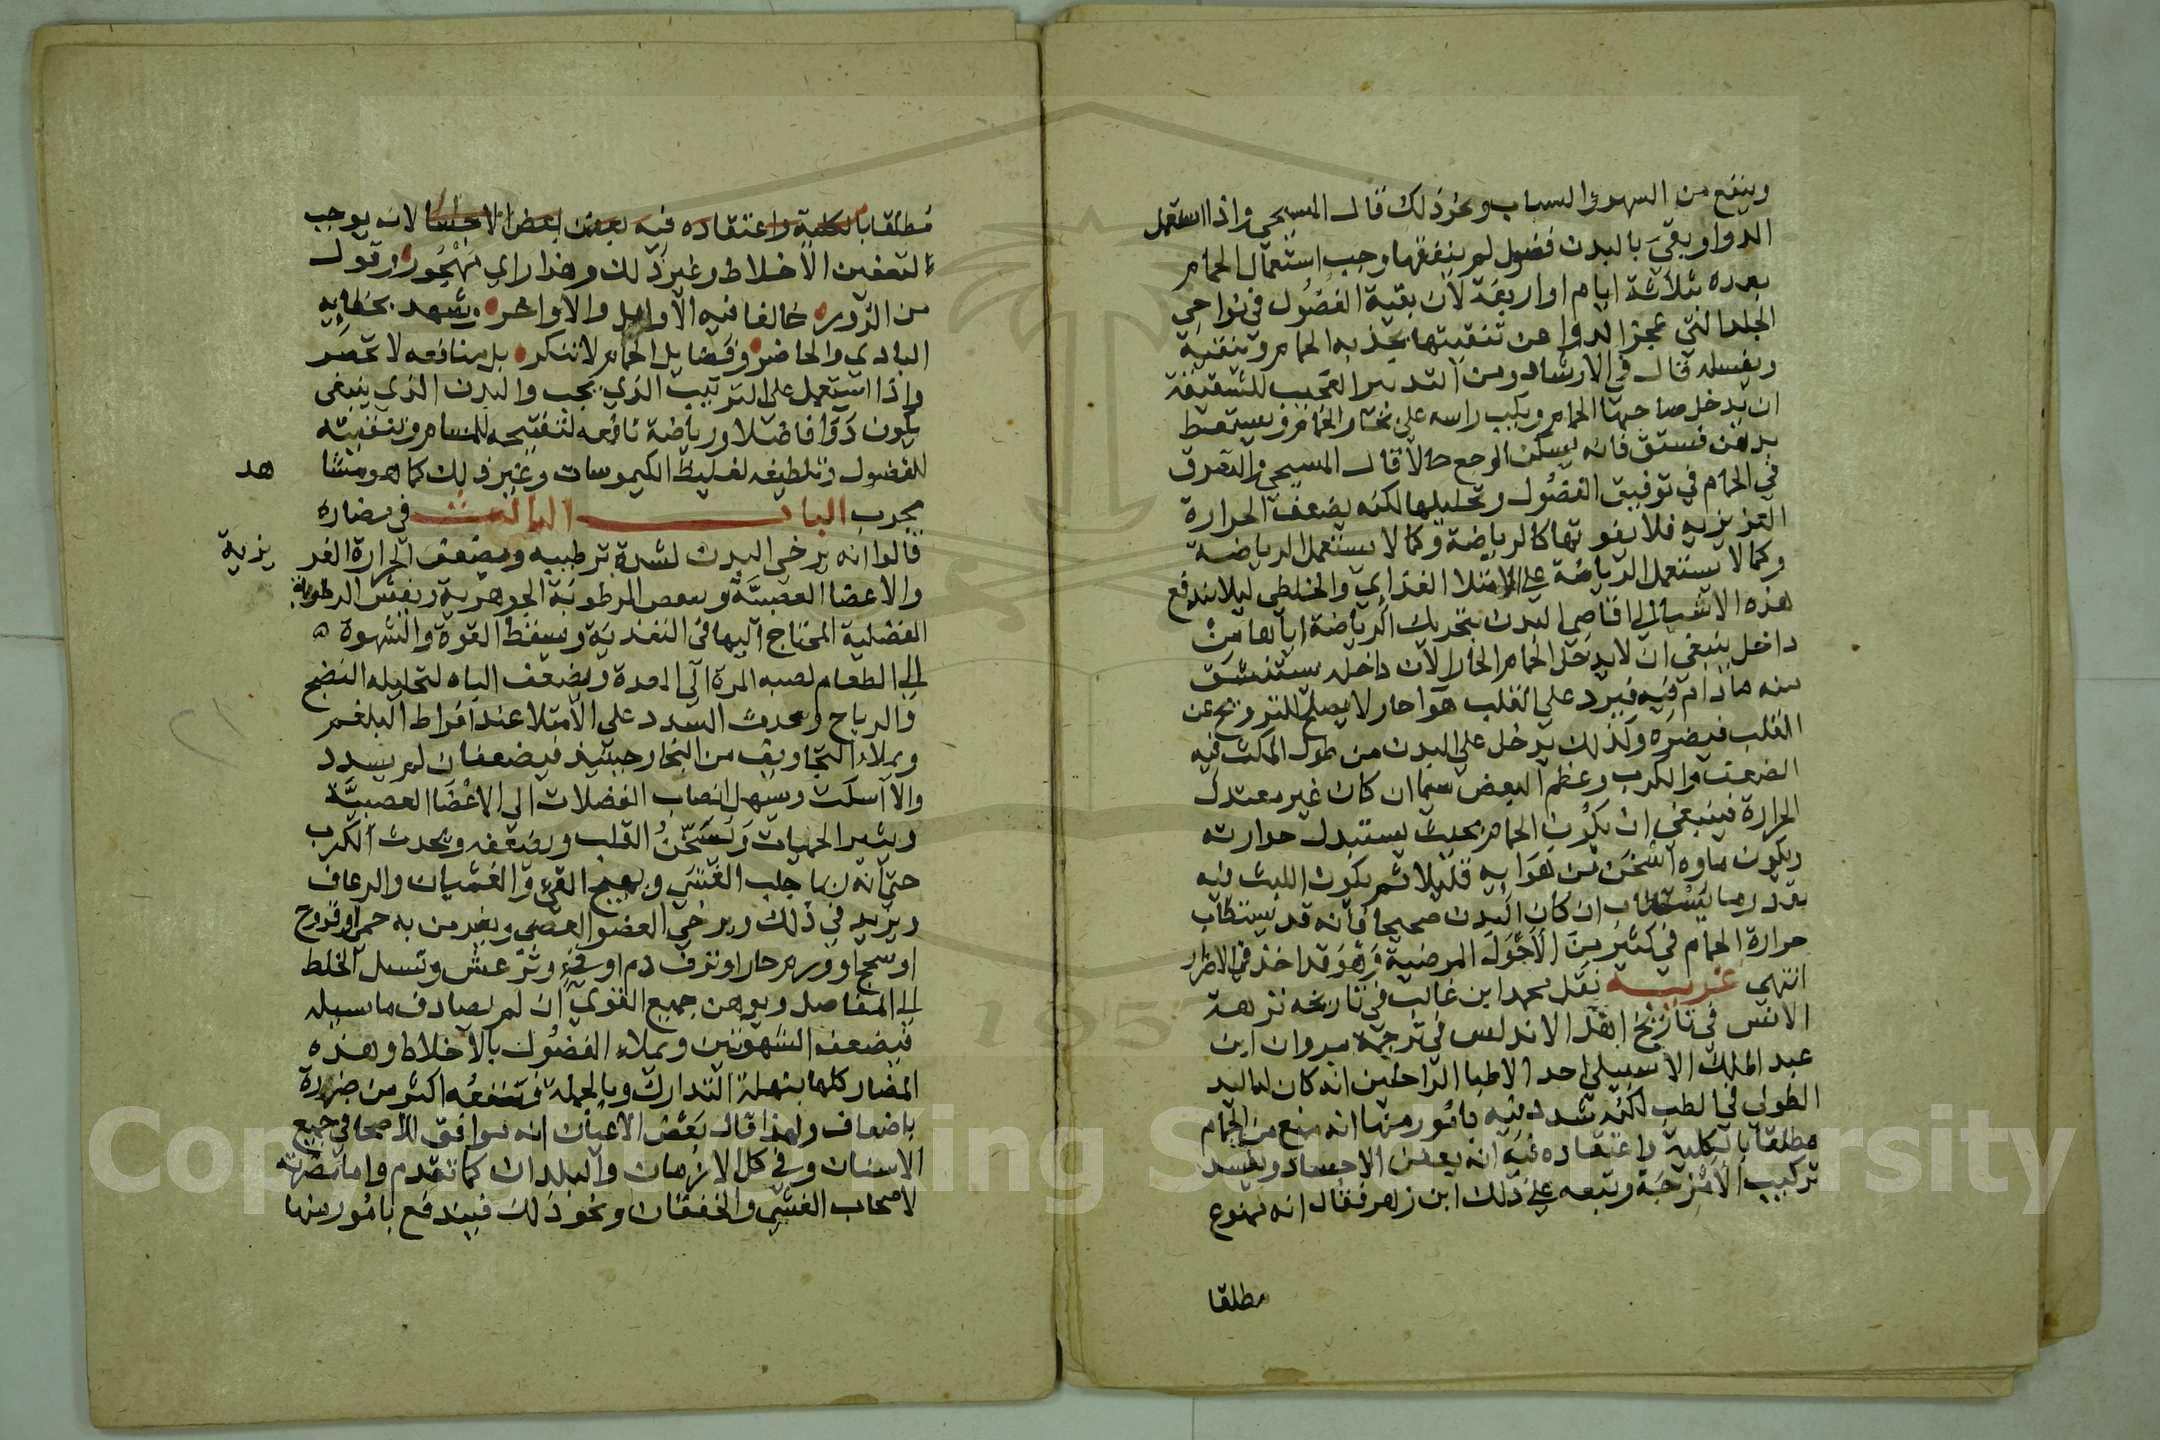 وينفع من السهر والسبات ونحو ذلك قال المسيحي واذا استعمل
الدوا وبقي بالبدن فضول لم ينفقها وجب استعمال الحمام
بعده بثلاثة ايام او اربعة لان بقية الفضول في نواحي
الجلد التي عجز الدوا عن تنقيتها يجذبه الحمام وتنقيه
ويغسله قال في الارشاد ومن التدبير العجيب للشقيقة
ان يدخل صاحبها الحمام ويكب راسه على بخار الحمام ويستعط
بدهن فستق فانه يسكن الوجع حالا قال المسيحي والتعرق
في الحمام في توفيق الفضول وتحليلها لكنه يضعف الحرارة
الغزيزيه فلا يقوتها كالرياضة وكما لا يستعمل الرياضة
وكما لا يستعمل الرياضة على الامتلا الغذاي والخلطي ليلا يندفع
هذه الاشيا الى اقاصي البدن بتحريك الرياضة اياها من
داخل ينبغي ان لا يدخل الحمام الحار لان داخله يستنشق
منه ما دام فيه فيرد على القلب هوا حار لا يصلح للترويح عن
القلب فيضره وكذلك يدخل على البدن من طول المكث فيه
الضعف والكرب وعظم البعض سيما ان كان غير معتدل
الحرارة فينبغي ان يكون الحمام بحيث يستبدل حرارته
ويكون ماوه اسخن من هوايه قليلا ثم يكون اللبث فيه
بقدر ما يستطاب ان كان البدن صحيحا فانه قد يستطاب
حرارة الحمام في كثير من الاحوال المرضية وهو قد اخذ في الاضرار
انتهى غريبه نقل محمد ابن غالب في تاريخه نزهة
الانفس في تاريخ اهل الاندلس في ترجمة مروان ابن
عبد الملك الاشبيلي احد الاطبا الراحلين انه كان له اليد
الطولى في الطب لكنه شدد فيه بامور منها انه منع من الحمام
مطلقا بالكلية واعتقاده فيه انه يعفن الاجساد ويفسد
تركيب الامزجة وتبعه على ذلك ابن زهر فقال انه ممنوع
مطلقا
مطلقا بالكلية واعتقاده فيه يعفن بعض الاجساد لانه يوجب
التعفين الاخلاط وغير ذلك وهذا راي مهجور وقول
من الزور خالفا فيه الاوايل والاواخر وشهد بخطايه
البادي والحاضر وفضايل الحمام لا تنكر بل منافعه لا تحصر
واذا استعمل على الترتيب الذي يجب والبدن الذي ينبغي
يكون دوآ فاضلا ورياضة نافعه لتفتيحه للمسام وتنقيته
للفضول وتلطيفه لغليظ الكيموسات وغير ذلك كما هو مشا
هد
مجرب الباب الثالث في مضاره
قالوا انه يرخي البدن لشدة ترطيبه ويضعف الحرارة الغر
يزية
والاعضا العصبية وبعض الرطوبة الجوهرية ويفش الرطوبة
الفضلية المحتاج اليها في التغذية ويسقط القوة والشهوة
الى الطعام لصبه المرة الى المعدة ويضعف الباه لتحليله النضج
والرياح ويحدث السدد على الامتلا عند افراط البلغم
ويملاء التجاويف من البخار حينيذ فيضعفان لم يسدد
والا اسكت ويسهل انصاب الفضلات الى الاعضا العصبية
ويثير الحميات ويسخن القلب ويضعفه ويحدث الكرب
حتى انه ربما جلب الغشي ويهيج القي والغثيان والرعاف
ويزيد في ذلك ويرخي العضو العصبي ويضر من به حمى او قروح
او سحج او ورم حار او نزف دم او قي وترعش وتسيل الخلط
الى المفاصل ويوهن جميع القوى ان لم يصادف ما سبيله
فيضعف الشهوتين ويملاء الفضول بالاخلاط وهذه
المضار كلها بنهلة التدارك وبالجملة فنفعه اكثر من ضرره
باضعاف ولهذا قال بعض الاعيان انه يوافق الاصحا في جميع
الاسنان وفي كل الازمان والبلدان كما تقدم واما مضرته
لاصحاب الغشي والخفقان ونحو ذلك فيندفع بامور منها
Copyright © King Saud University
1957